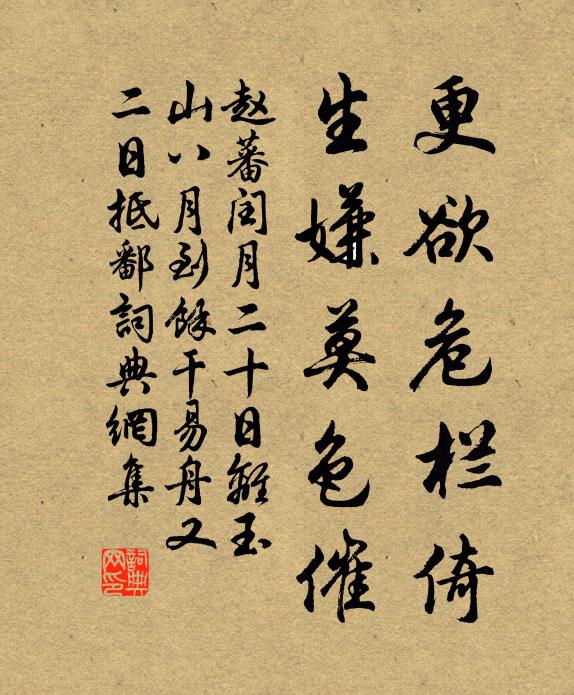 更欲危栏倚
生嫌莫色催
赵蕃闰月二十日离玉
山八月到余干易舟又
二日抵鄱詞典網集
詞典网印